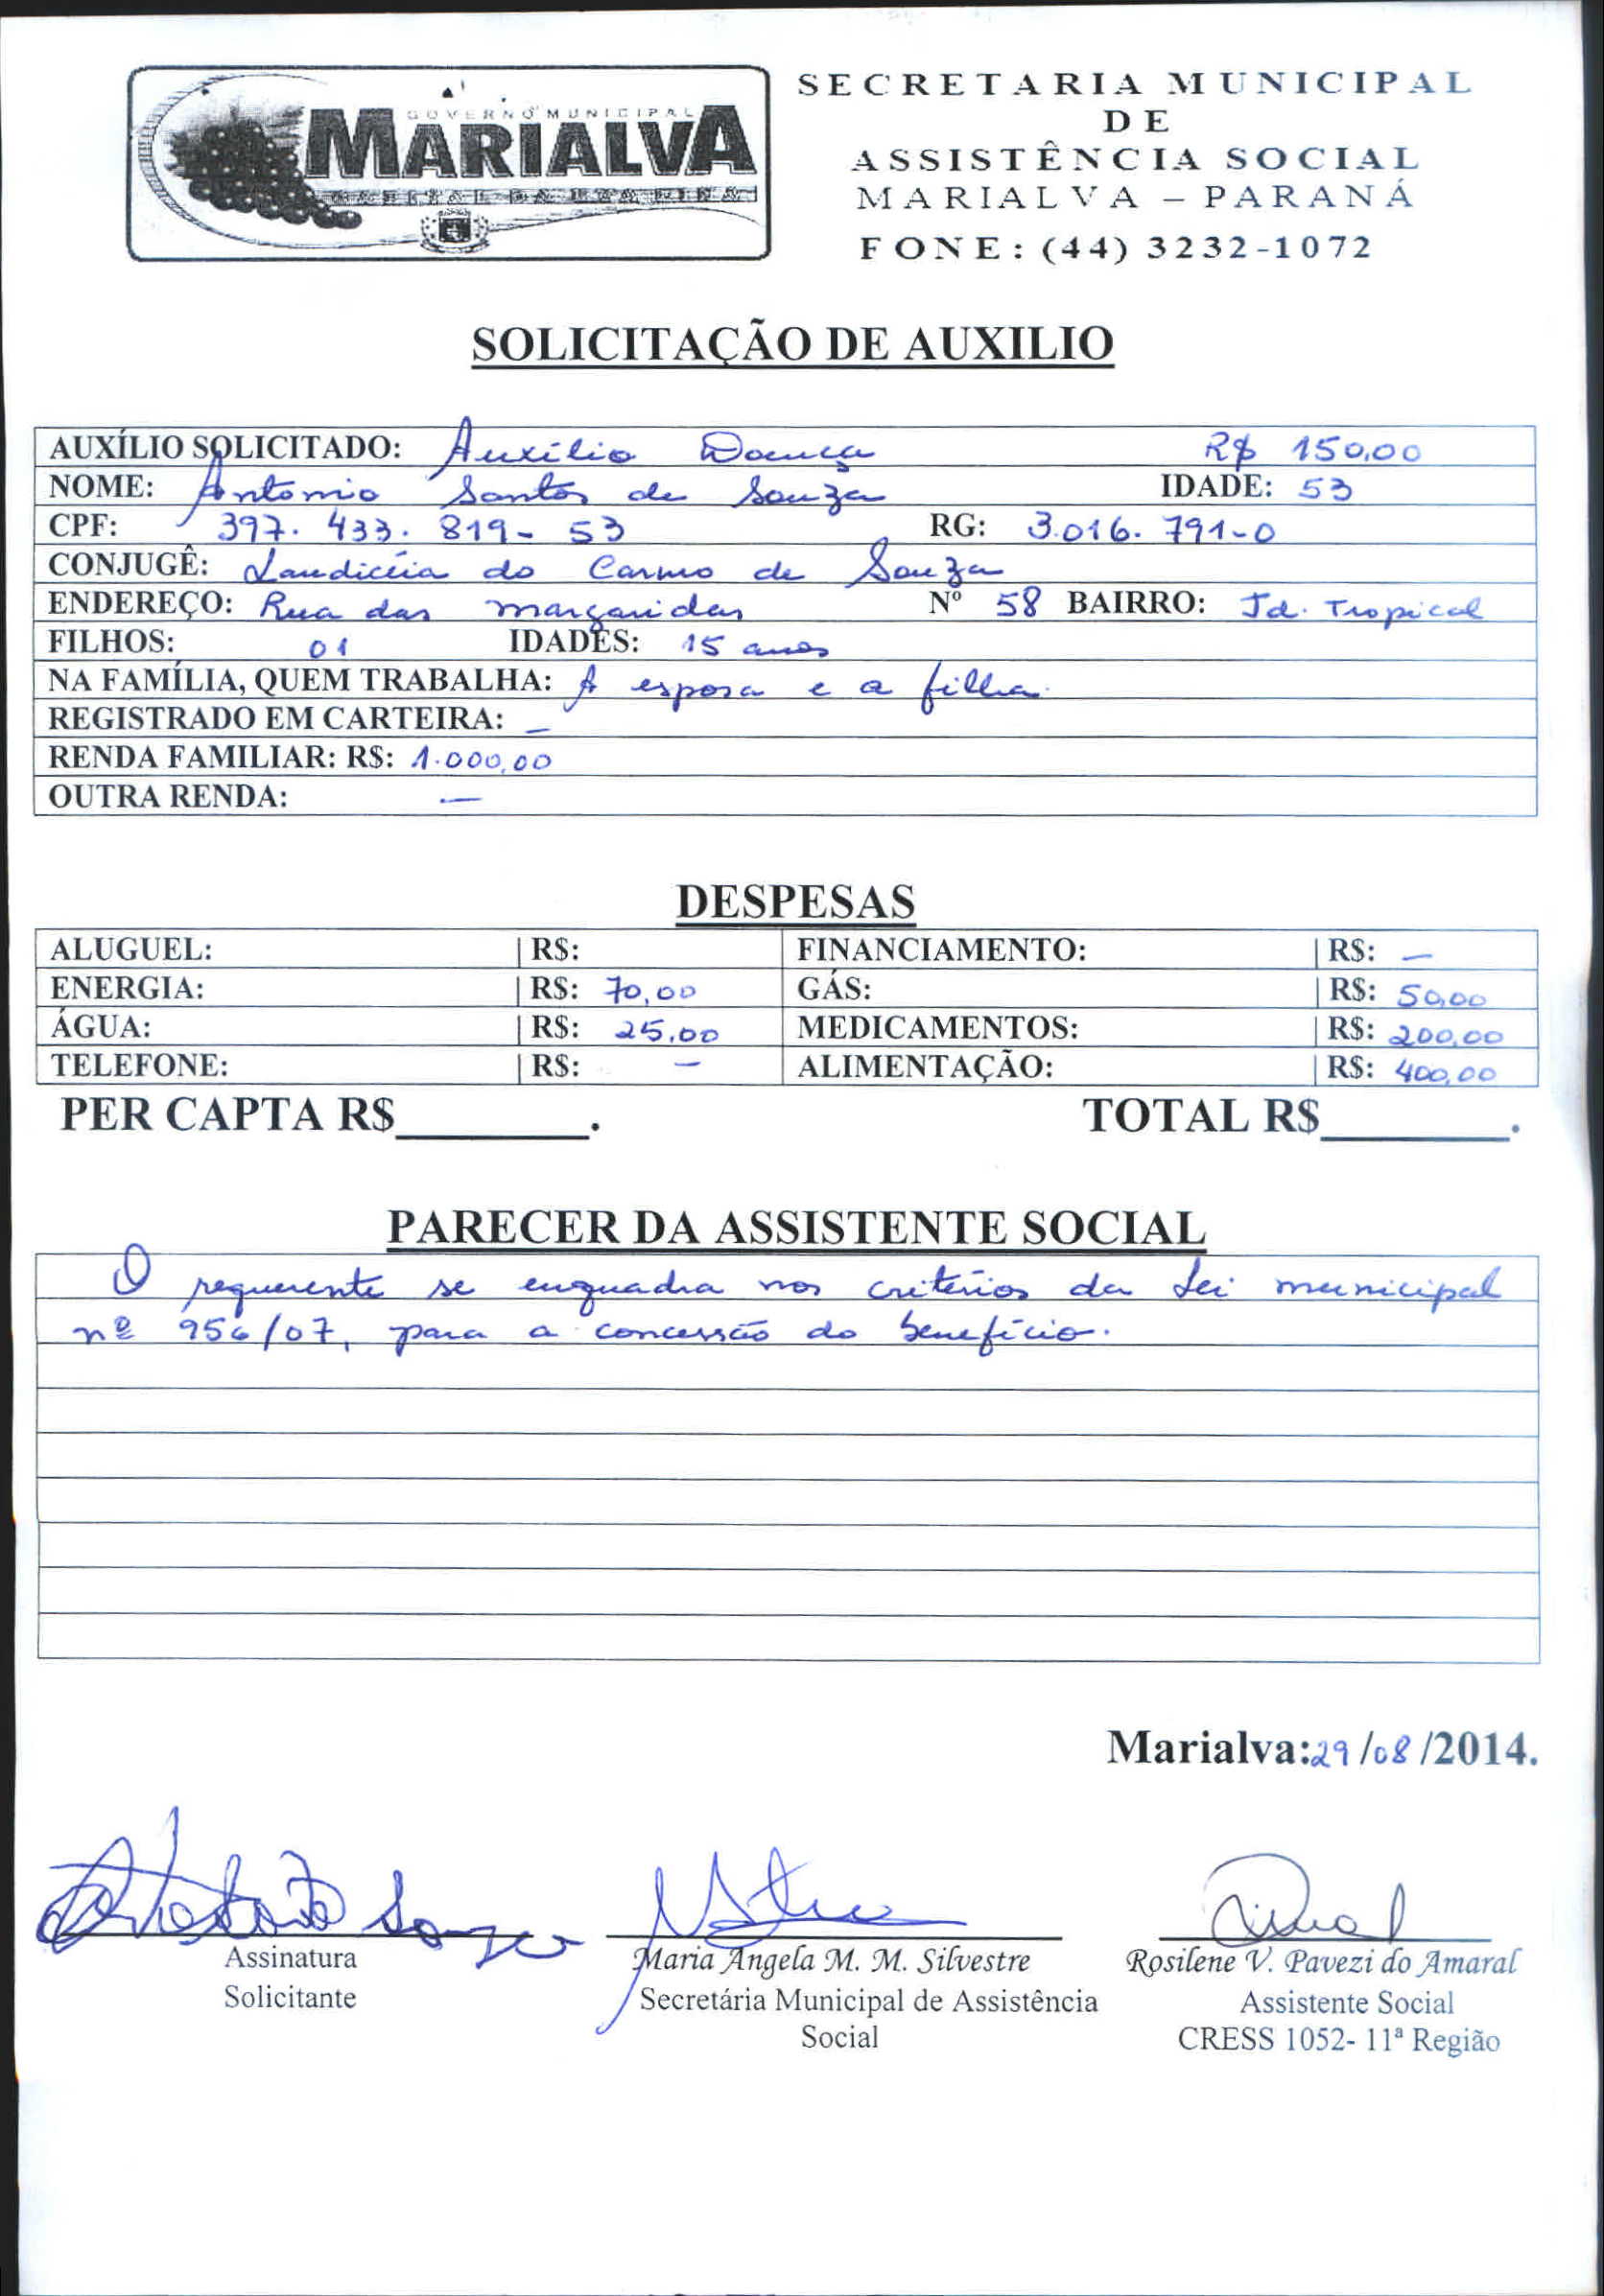 GOVERNO MUNICIPAL
MARIALVA
CAPITAL DA UVA FINA
SECRETARIA MUNICIPAL
DE
ASSISTÊNCIA SOCIAL
MARIALVA – PARANÁ
FONE: (44) 3232-1072
SOLICITAÇÃO DE AUXILIO
AUXÍLIO SOLICITADO: Auxílio Doença R$ 150,00
NOME: Antonio Santos de Souza IDADE: 53
CPF: 397.433.819-53 RG: 3.016.791-0
CONJUGÊ: Laudicéia do Carmo de Souza
ENDEREÇO: Rua das margaridas Nº 58 BAIRRO: Jd. Tropical
FILHOS: 01 IDADES: 15 anos
NA FAMÍLIA, QUEM TRABALHA: A esposa e a filha.
REGISTRADO EM CARTEIRA: –
RENDA FAMILIAR: R$: 1.000,00
OUTRA RENDA: –
DESPESAS
ALUGUEL: | R$: FINANCIAMENTO: | R$: –
ENERGIA: | R$: 70,00 GÁS: | R$: 50,00
ÁGUA: | R$: 25,00 MEDICAMENTOS: | R$: 200,00
TELEFONE: | R$: – ALIMENTAÇÃO: | R$: 400,00
PER CAPTA R$________. TOTAL R$________.
PARECER DA ASSISTENTE SOCIAL
O requerente se enquadra nos critérios da Lei municipal
nº 956/07, para a concessão do benefício.
Marialva:29/08/2014.
Assinatura Maria Angela M. M. Silvestre Rosilene V. Pavezi do Amaral
Solicitante Secretária Municipal de Assistência Assistente Social
Social CRESS 1052- 11ª Região